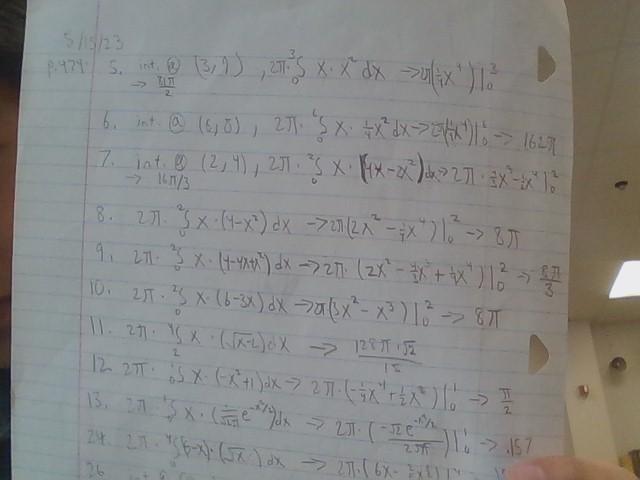 5/15/23
p.474 5. int. @ (3,9), 2π·³∫₀ x·x² dx → 2π(¼x⁴)|₀³
→ 81π/2
6. int. @ (6,8), 2π·⁶∫₀ x· ¼x² dx → → 162π
7. int. @ (2,4), 2π·²∫₀ x·(4x-2x²)dx → 2π·
→ 16π/3
8. 2π·²∫₀ x·(4-x²) dx → 2π(2x²-¼x⁴)|₀² → 8π
9. 2π·²∫₀ x·(4-4x+x²)dx → 2π·(2x²-4/3x³+¼x⁴)|₀² → 8π/3
10. 2π·²∫₀ x·(6-3x)dx → 2π(3x²-x³)|₀² → 8π
11. 2π·⁴∫₂ x·(√x-2)dx → 128π·√2/15
12. 2π·¹∫₀ x·(-x²+1)dx → 2π·(-¼x⁴+½x²)|₀¹ → π/2
13. 2π·¹∫₀ x·(1/√2π e^-x²/2)dx → 2π·(-√2e^-x²/2/2√π)|₀¹ → .157
24. 2π·⁴∫₀(6-x)·(√x)dx → 2π·
26